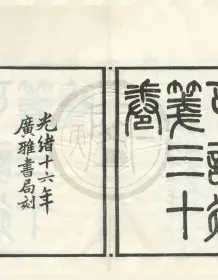 箋三十
卷
光緒十六年
廣雅書局刻